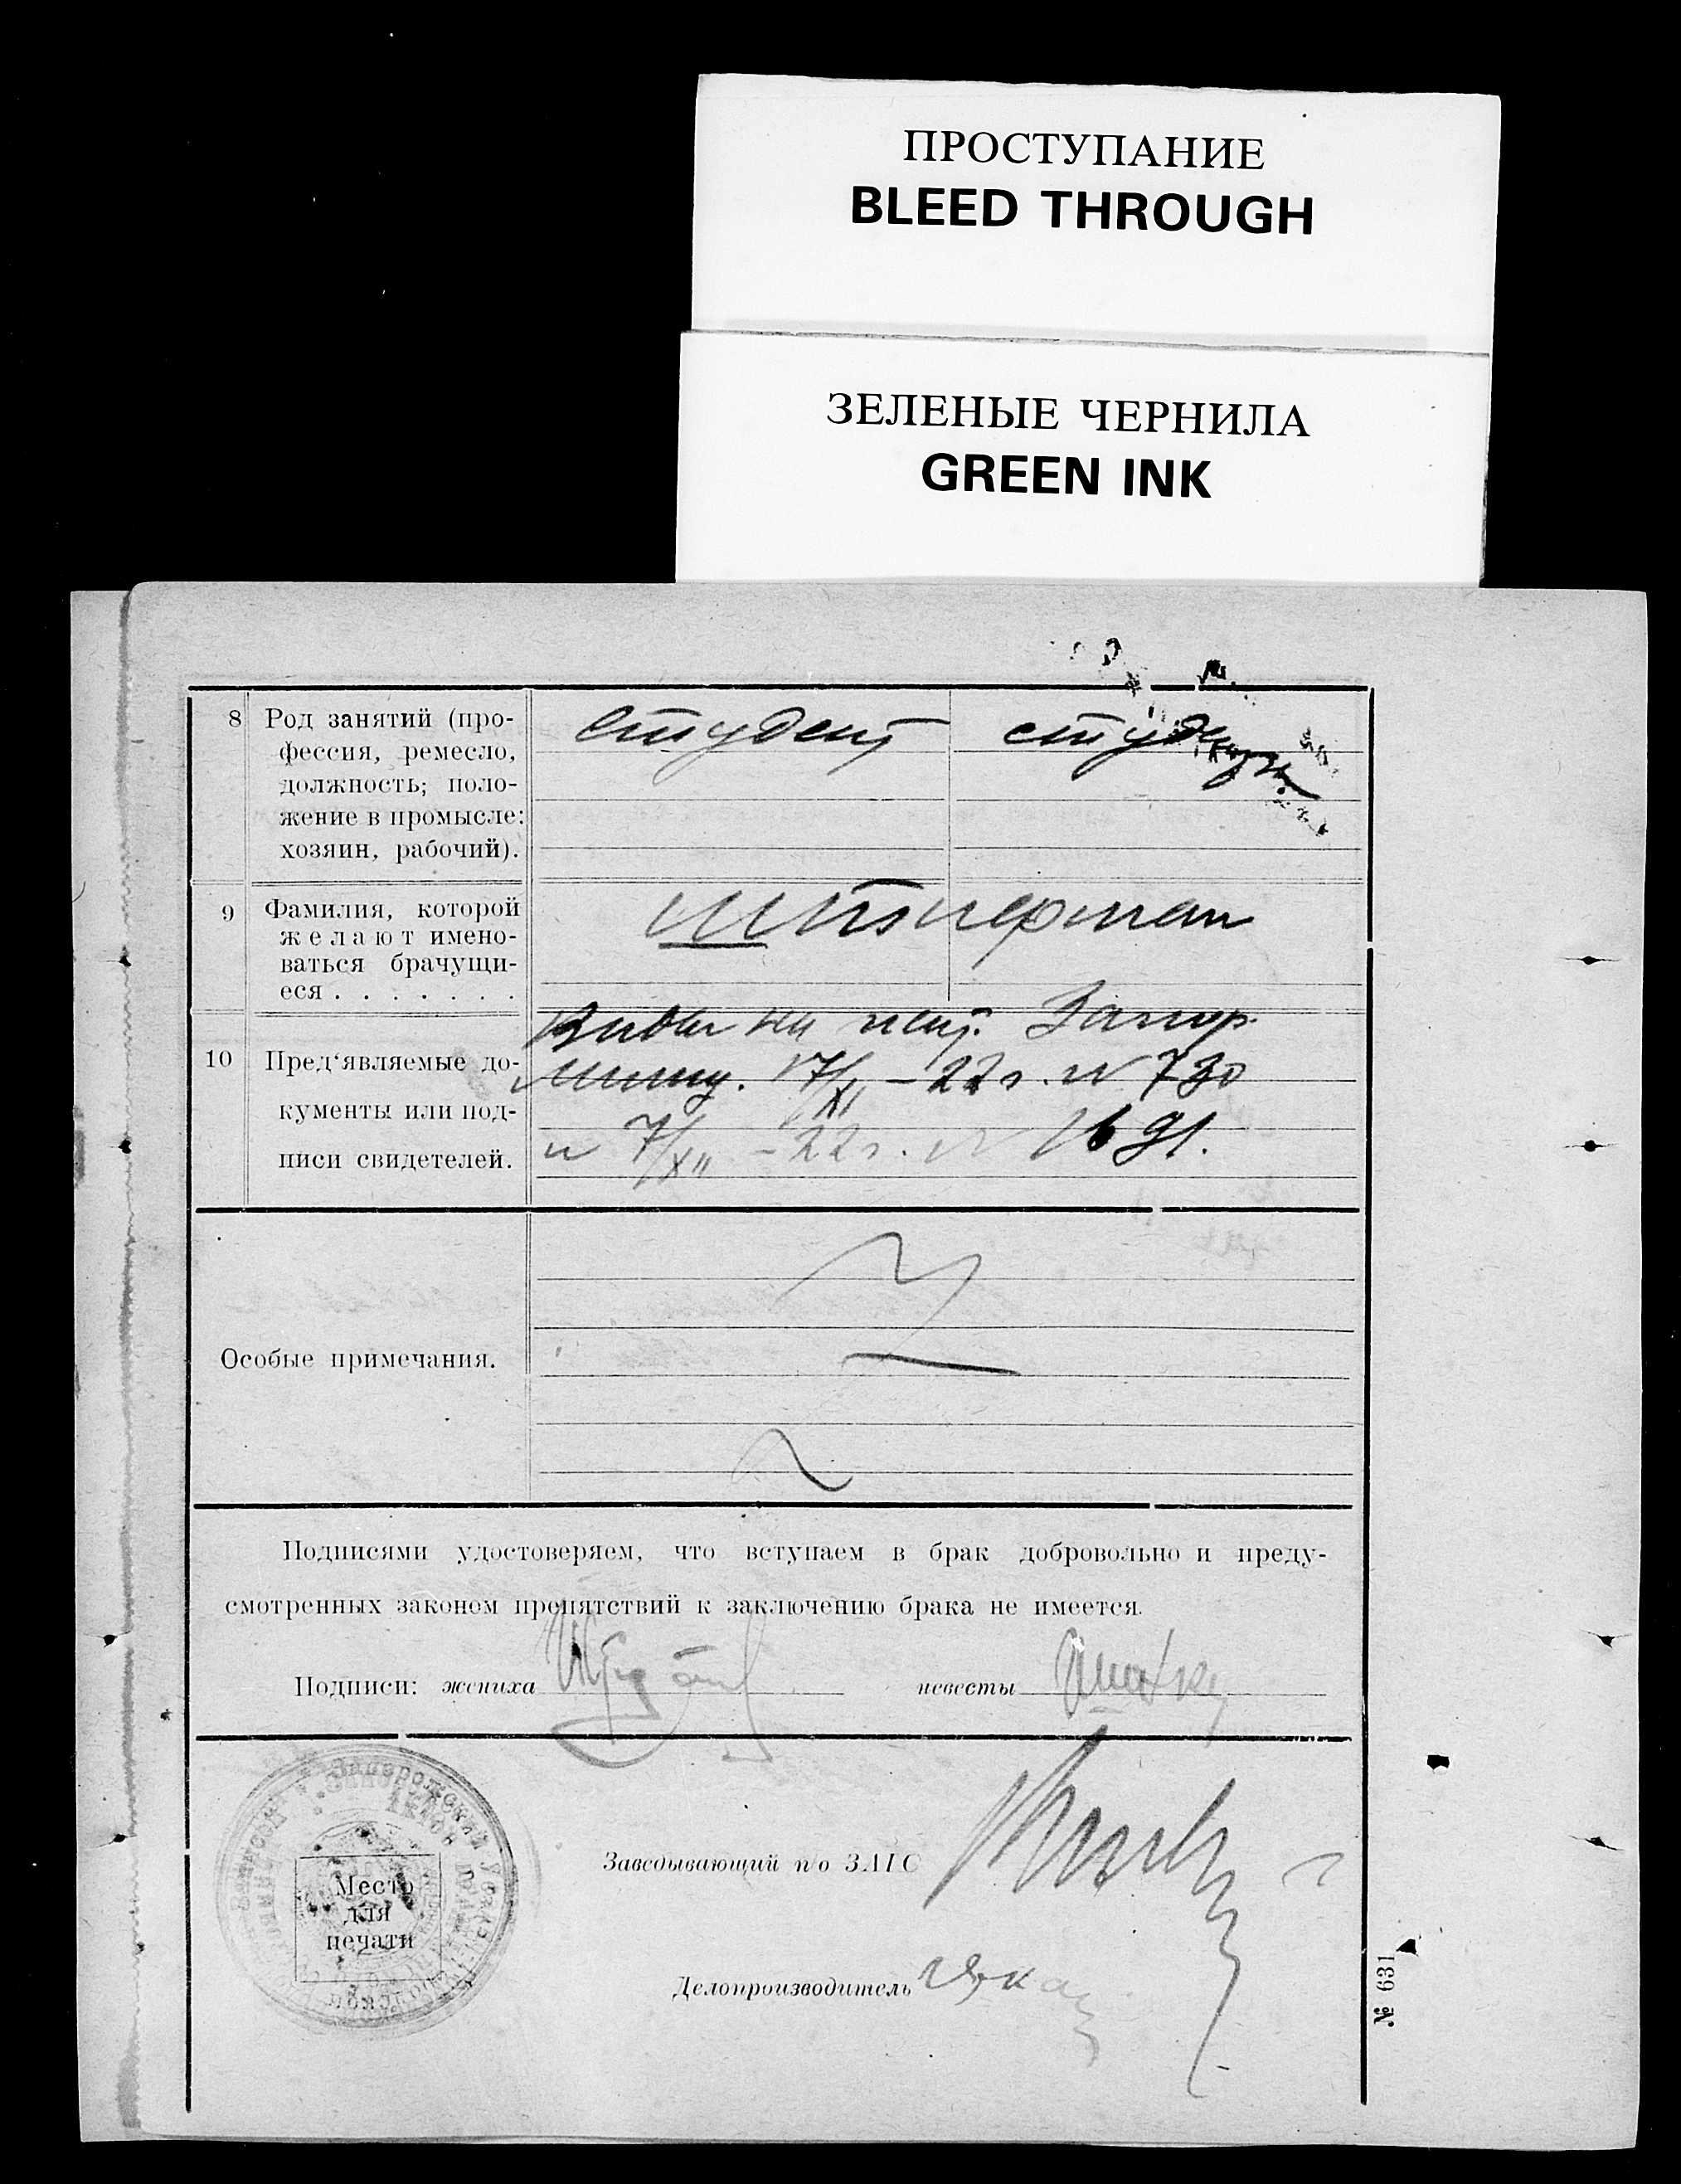 ПРОСТУПАНИЕ
BLEED THROUGH
ЗЕЛЕНЫЕ ЧЕРНИЛА
GREEN INK
8 Род занятий (про-
фессия, ремесло,
должность; поло-
жение в промысле:
хозяин, рабочий).
студент
студент
9 Фамилия, которой
желают имено-
ваться брачущи-
еся . . . . . . .
10 Пред‘являемые до-
кументы или под-
писи свидетелей.
Виды на Запор.
17/XI – 22 г. № 730
и 7/XII – 22 г. № 1691.
Особые примечания.
Подписями удостоверяем, что вступаем в брак добровольно и преду-
смотренных законом препятствий к заключению брака не имеется.
Подписи: жениха
невесты
Заведывающий п/о ЗАГС
Место
для
печати
Делопроизводитель
№ 631